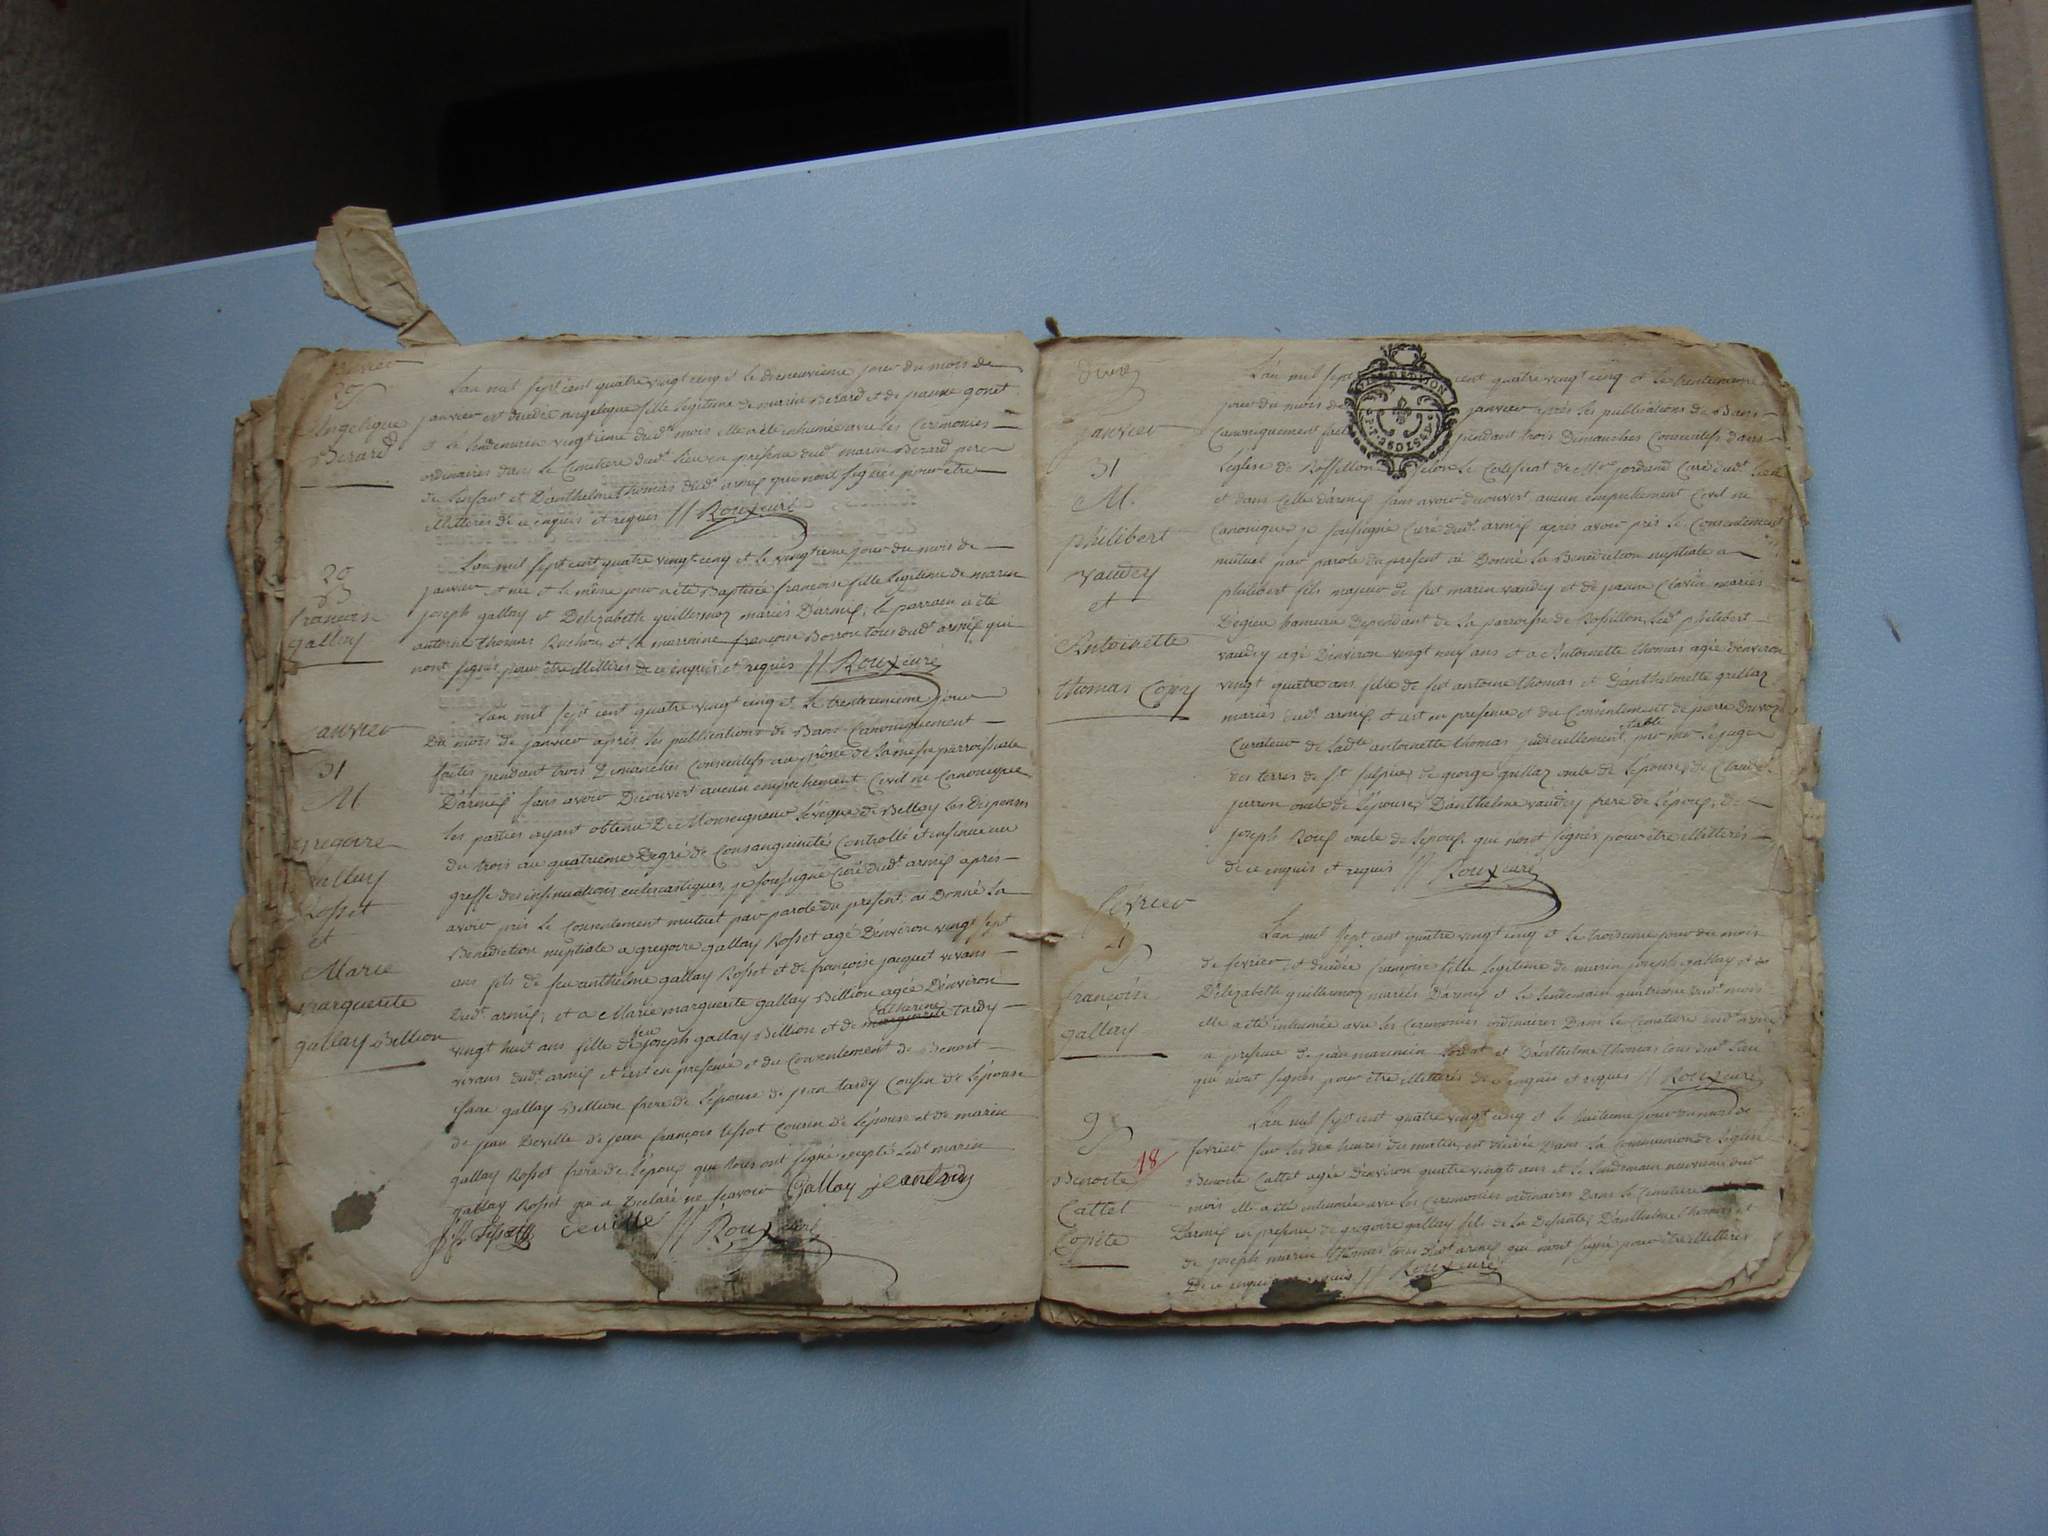 20
Angelique
Berard
L'an mil sept cent quatre vingt cinq et le dixneuvieme jour du mois de
janvier est decedée angelique fille legitime de marin Berard et de jeanne gonet
et le lendemain vingtieme dudt mois elle a été inhumée avec les Ceremonies
ordinaires dans le Cimetiere dudt lieu en presence dudt marin Berard pere
de l'enfant et D'anthelme thomas dudt armix qui n'ont signés pour être
illitterés de ce enquis et requis // Roux curé
20
francoise
gallay
L'an mil sept cent quatre vingt cinq et le vingtieme jour du mois de
janvier est née et le même jour a été Baptisée francoise fille legitime de marin
joseph gallay et D'elizabeth guillermoz mariés D'armix, le parrain a été
antoine thomas et la marraine francoise tous dudt armix qui
n'ont signés pour être illitterés de ce enquis et requis // Roux curé
janvier
31
M
gregoire
gallay
Rosset
et
Marie
marguerite
gallay Billion
L'an mil sept cent quatre vingt cinq et le trente unieme jour
Du mois de janvier après les publications de Bans Canoniquement
faites pendant trois Dimanches Consecutifs au prône de la messe parroissiale
D'armix sans avoir Decouvert aucun empechement Civil ne Canonique
les parties ayant obtenu De Monseigneur l'évèque de Bellay les dispenses
du trois au quatrieme Degré de Consanguinité Controllé et insinué au
greffe des insinuations eclesiastiques, je soussigné Curé dudt armix après
avoir pris le Consentement mutuel par parole du present ai Donné la
Benediction nuptiale a gregoire gallay Rosset agé D'environ vingt sept
ans fils de feu anthelme gallay Rosset et de françoise jacquet vivans
dudt armix, et a Marie marguerite gallay Billion agée D'environ
vingt huit ans fille de feu joseph gallay Billion et de marguerite catherine tardy
vivans dudt armix et c'est en presence et du Consentement de Benoit
gallay Billion frere de l'épouse de jean tardy Cousin de l'épouse
de jean Deville de jean françois tissot Cousin de l'épouse et de marin
gallay Rosset frere de l'époux qui tous ont signé excepté ledt marin
gallay Rosset qui a Declaré ne sçavoir Gallay jean tardy
deville // Roux curé
janvier
31
M.
philibert
vaudey
et
Antoinette
thomas Copry
L'an mil sept cent quatre vingt cinq et le trente unieme
G. DE DIJON
jour du mois de janvier après les publications de Bans
Canoniquement faites pendant trois Dimanches Consecutifs dans
l'eglise de Rossillon selon le Certificat de Mre jordand Curé dudt lieu
et dans celle D'armix sans avoir decouvert aucun empechement Civil ne
Canonique je soussigné Curé dudt armix après avoir pris le Consentement
mutuel par parole du present ai Donné la Benediction nuptiale a
philibert fils majeur de fut marin vaudey et de jeanne Clavin mariés
D'egieu hameau Dependant de la parroisse de Rossillon, ledt philibert
vaudey agé D'environ vingt neuf ans et a Antoinette thomas agée d'environ
vingt quatre ans fille de fut antoine thomas et D'anthelmette grillaz
mariés dudt armix et c'est en presence et du Consentement de pierre
Curateur de ladte antoinette thomas judiciellement établi par mr le juge
des terres de st sulpice, de george grillaz oncle de l'épouse, de Claude
oncle de l'épouse, D'anthelme vaudey frere de l'époux, de
joseph Roux oncle de l'époux qui n'ont signés pour être illitterés
de ce enquis et requis // Roux curé
fevrier
4
françoise
gallay
L'an mil sept cent quatre vingt cinq et le troisieme jour du mois
de fevrier est decedée françoise fille legitime de marin joseph gallay et
D'elizabeth guillermoz mariés D'armix et le lendemain quatrieme dudt mois
elle a été inhumée avec les Ceremonies ordinaires Dans le Cimetiere dudt armix
a presence de jean et D'anthelme thomas tous dudt lieu
qui n'ont signés pour être illitterés de ce enquis et requis // Roux curé
9
Benoite
Cattet
Copete
18
L'an mil sept cent quatre vingt cinq et le huitieme jour du mois de
fevrier sur les dix heures du matin est decedée Dans la Communion de l'église
Benoite Cattet agée D'environ quatre vingt ans et le lendemain neuvieme dudt
mois elle a été inhumée avec les Ceremonies ordinaires Dans le Cimetiere
D'armix en presence de gregoire gallay fils de la Defunte, D'anthelme thomas et
de joseph marin thomas tous dudt armix qui n'ont signé pour être illitterés
De ce enquis et requis // Roux curé